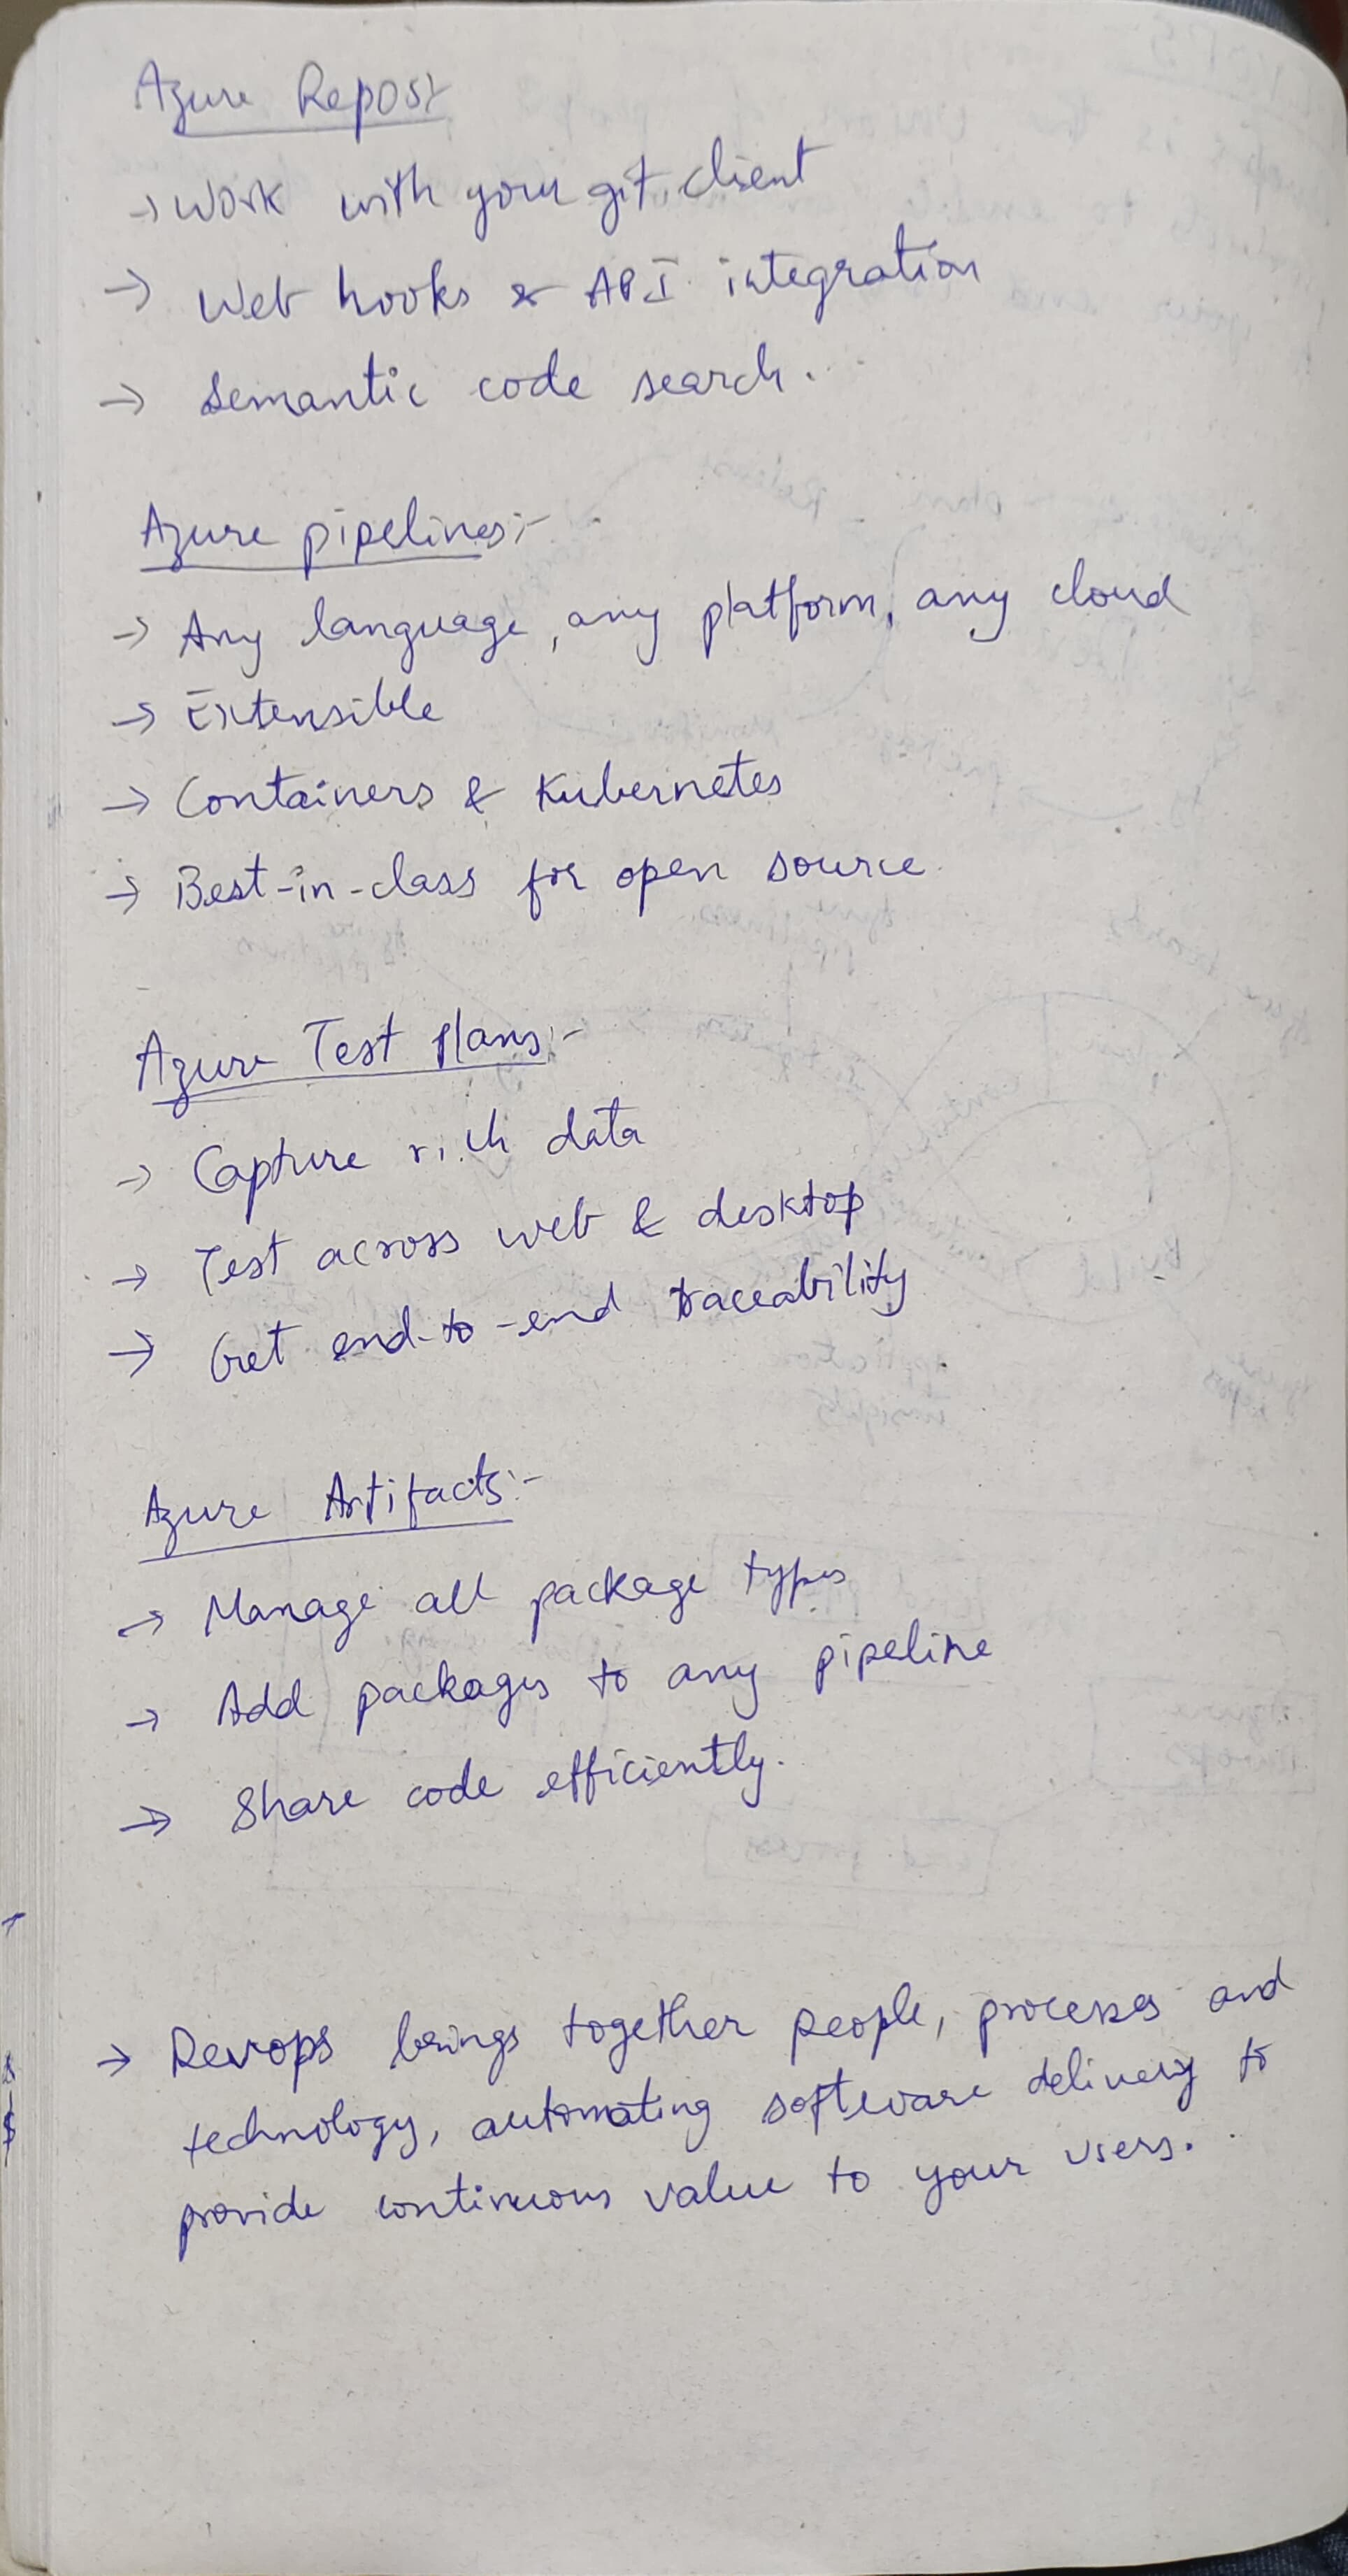 Azure Repost
→ Work with your git client
→ Web hooks & API integration
→ Semantic code search.
Azure pipelines:-
→ Any language, any platform, any cloud
→ Extensible
→ Containers & Kubernetes
→ Best-in-class for open source
Azure Test plans:-
→ Capture rich data
→ Test across web & desktop
→ Get end-to-end traceability
Azure Artifacts:-
→ Manage all package types
→ Add packages to any pipeline
→ Share code efficiently.
→ Devops brings together people, processes and
technology, automating software delivery to
provide continuous value to your users.